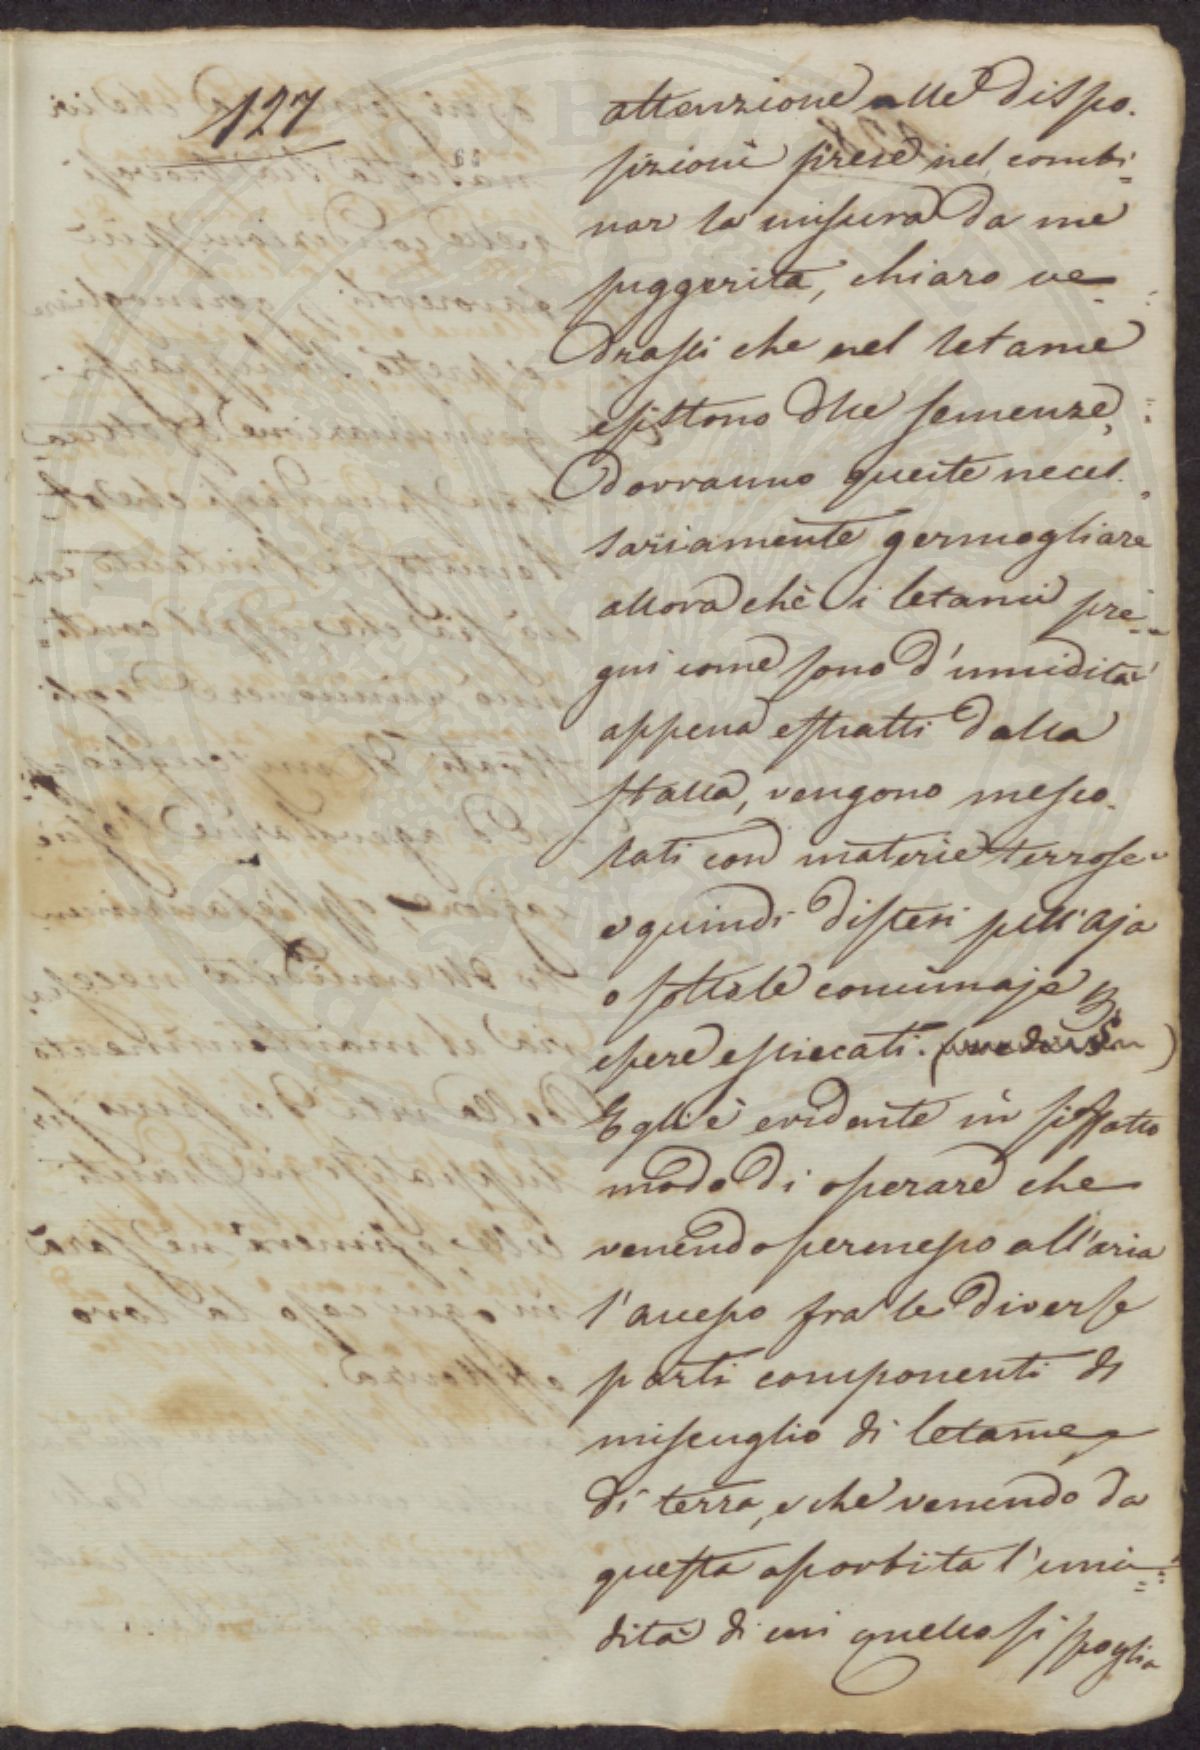 127
attenzione alle dispo-
sizioni prese nel combi-
nar la misura da me
suggerita, chiaro ve-
drassi che nel letame
esistono dlle semenze,
dovranno queste neces-
sariamente germogliare
allora chè i letami pre-
gni come sono d'umidità
appena estratti dalla
stalla, vengono mesco-
lati con materie terrose
e quindi distesi sull'aja
o sotto le concimaje
essere essiccati. (
Egli è evidente in siffatto
modo di operare che
venendo permesso all'aria
l'accesso fra le diverse
parti componenti di
miscuglio di letame e
di terra, e che venendo da
questa assorbita l'umi-
dità di cui quello si spoglia